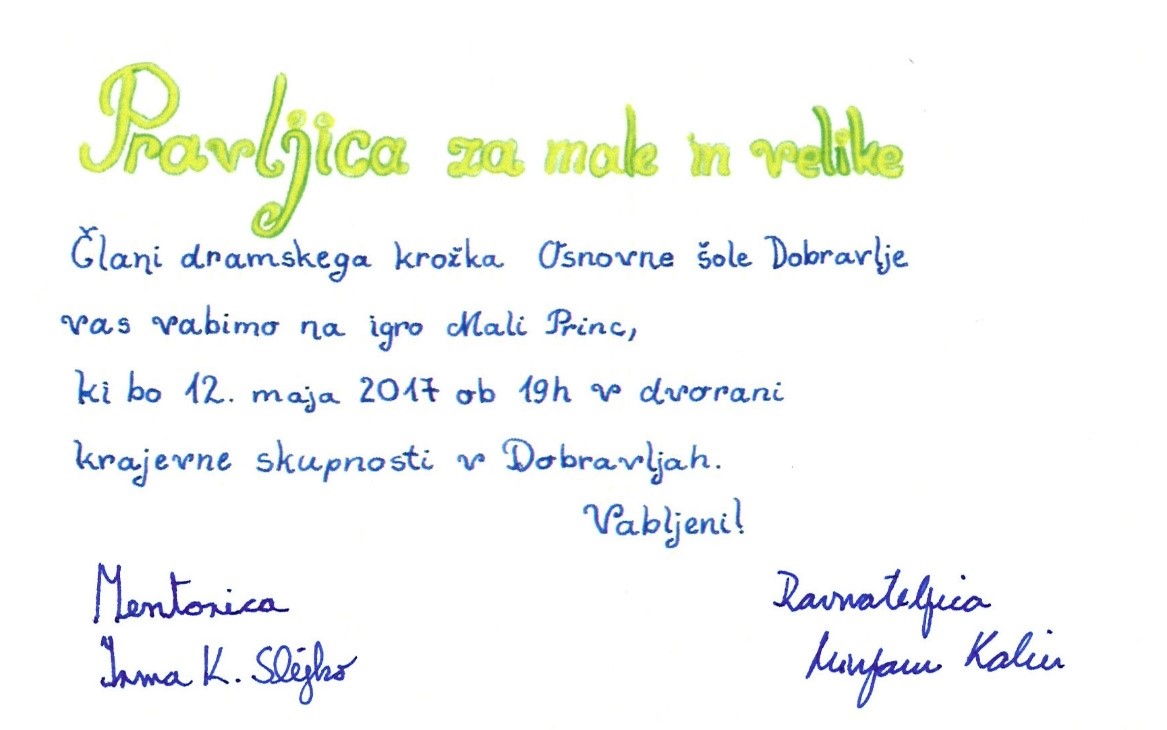 Pravljica za male in velike
Člani dramskega krožka Osnovne šole Dobravlje
vas vabimo na igro Mali Princ,
ki bo 12. maja 2017 ob 19h v dvorani
krajevne skupnosti v Dobravljah.
Vabljeni!
Mentorica
Irma K. Slejko
Ravnateljica
Mirjam Kalin